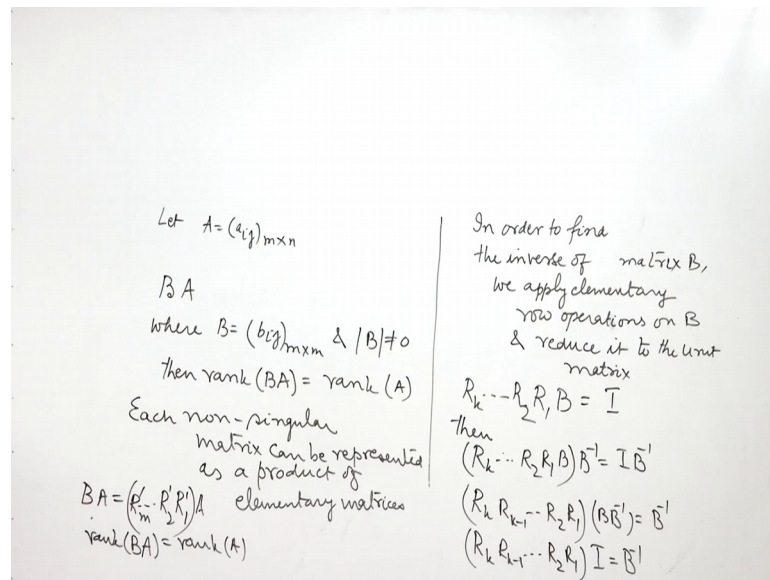 Let A = (aij)m×n
BA
where B = (bij)m×m & |B| ≠ 0
then rank (BA) = rank (A)
Each non-singular
matrix can be represented
as a product of
elementary matrices
BA = (R'm ... R'2 R'1) A
rank (BA) = rank (A)
In order to find
the inverse of matrix B,
we apply elementary
row operations on B
& reduce it to the unit
matrix
Rk ... R2 R1 B = I
then
(Rk ... R2 R1 B) B⁻¹ = I B⁻¹
(Rk Rk-1 ... R2 R1) (BB⁻¹) = B⁻¹
(Rk Rk-1 ... R2 R1) I = B⁻¹